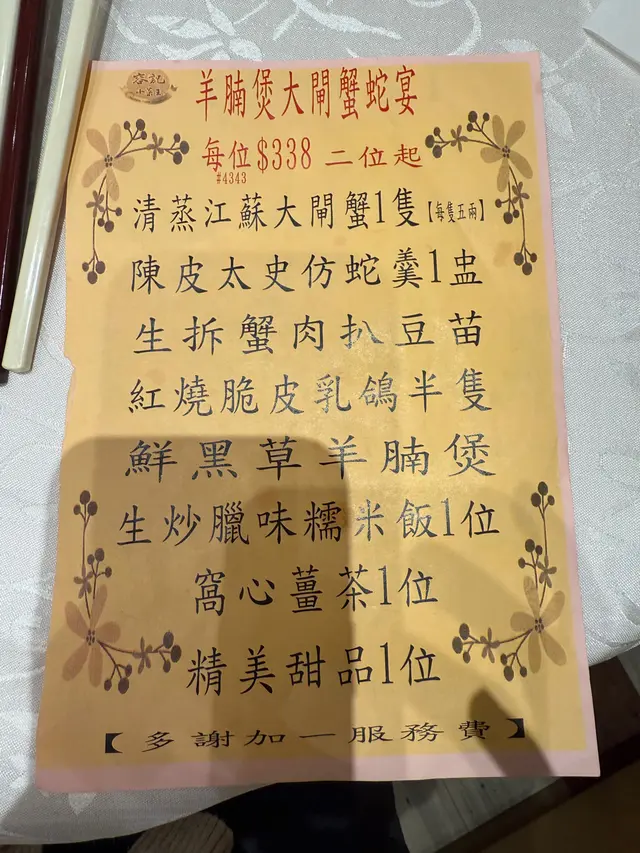 容記
小菜王
羊腩煲大閘蟹蛇宴
每位$338 二位起
#4343
清蒸江蘇大閘蟹1隻【每隻五兩】
陳皮太史仿蛇羹1盅
生拆蟹肉扒豆苗
紅燒脆皮乳鴿半隻
鮮黑草羊腩煲
生炒臘味糯米飯1位
窩心薑茶1位
精美甜品1位
【多謝加一服務費】